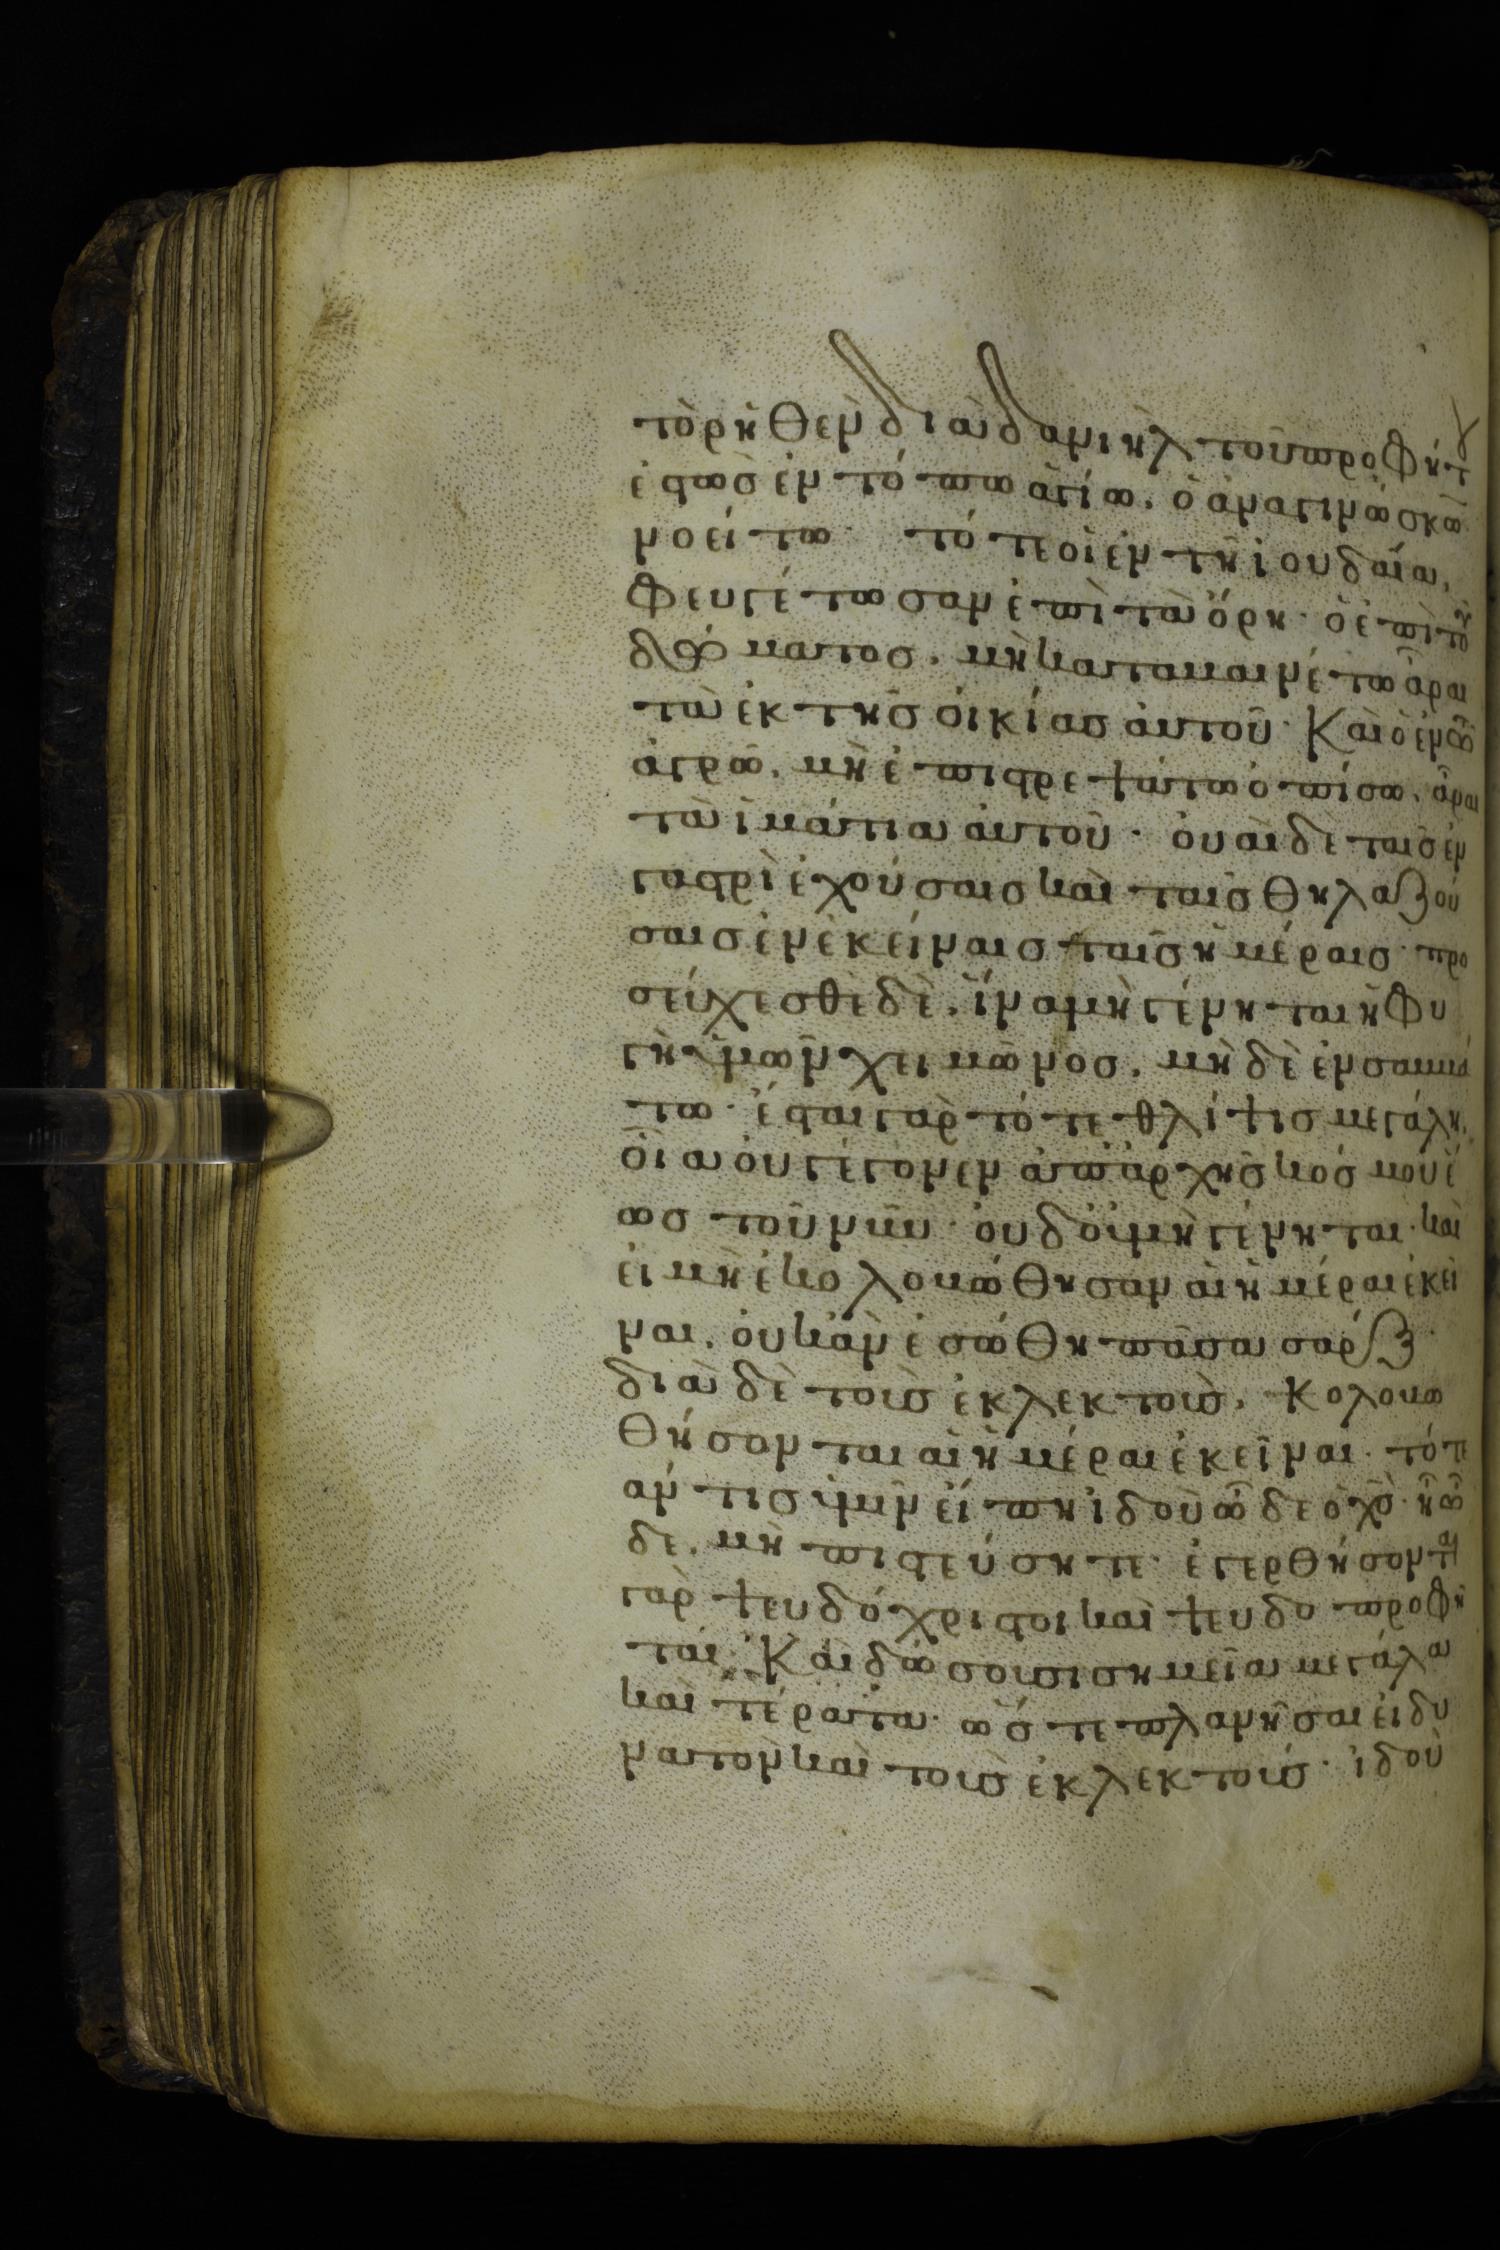 τὸ ῥηθὲν διὰ δανιὴλ τοῦ προφήτ
ἑστὼς ἐν τόπω ἁγίω. ὁ ἀναγινώσκω
νοείτω. τότε οἱ ἐν τῆ ἰουδαία,
φευγέτωσαν ἐπὶ τὰ ὄρη. ὁ ἐπὶ τοῦ
δώματος, μὴ καταβαινέτω ἆραι
τὰ ἐκ τῆς οἰκίας αὐτοῦ. Καὶ ὁ ἐν τῶ
ἀγρῶ, μὴ ἐπιστρεψάτω ὀπίσω, ἆραι
τὰ ἱμάτια αὐτοῦ. οὐαὶ δὲ ταῖς ἐν
γαστρὶ ἐχούσαις καὶ ταῖς θηλαζού
σαις ἐν ἐκείναις ταῖς ἡμέραις. προ
σεύχεσθε δὲ, ἵνα μὴ γένηται ἡ φυ
γὴ ὑμῶν χειμῶνος, μὴ δὲ ἐν σαββά
τω. ἔσται γὰρ τότε θλίψις μεγάλη,
οἵα οὐ γέγονεν ἀπ ἀρχῆς κόσμου ἕ
ως τοῦ νῦν. οὐδ οὐ μὴ γένηται. καὶ
εἰ μὴ ἐκολοβώθησαν αἱ ἡμέραι ἐκεῖ
ναι, οὐκ ἂν ἐσώθη πᾶσα σάρξ.
διὰ δὲ τοὺς ἐκλεκτοὺς, κολοβω
θήσονται αἱ ἡμέραι ἐκεῖναι. τότε
ἄν τις ὑμῖν εἴπη ἰδοὺ ὧδε ὁ χς. ἢ ὧ
δε, μὴ πιστεύσητε. ἐγερθήσονται
γὰρ ψευδόχριστοι καὶ ψευδοπροφῆ
ται. Καὶ δώσουσι σημεῖα μεγάλα
καὶ τέρατα. ὥστε πλανῆσαι εἰ δυ
νατὸν καὶ τοὺς ἐκλεκτούς. ἰδοὺ